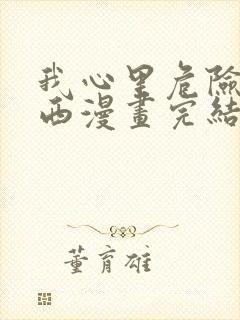 我心里危險
西漫畫完結
董育雄